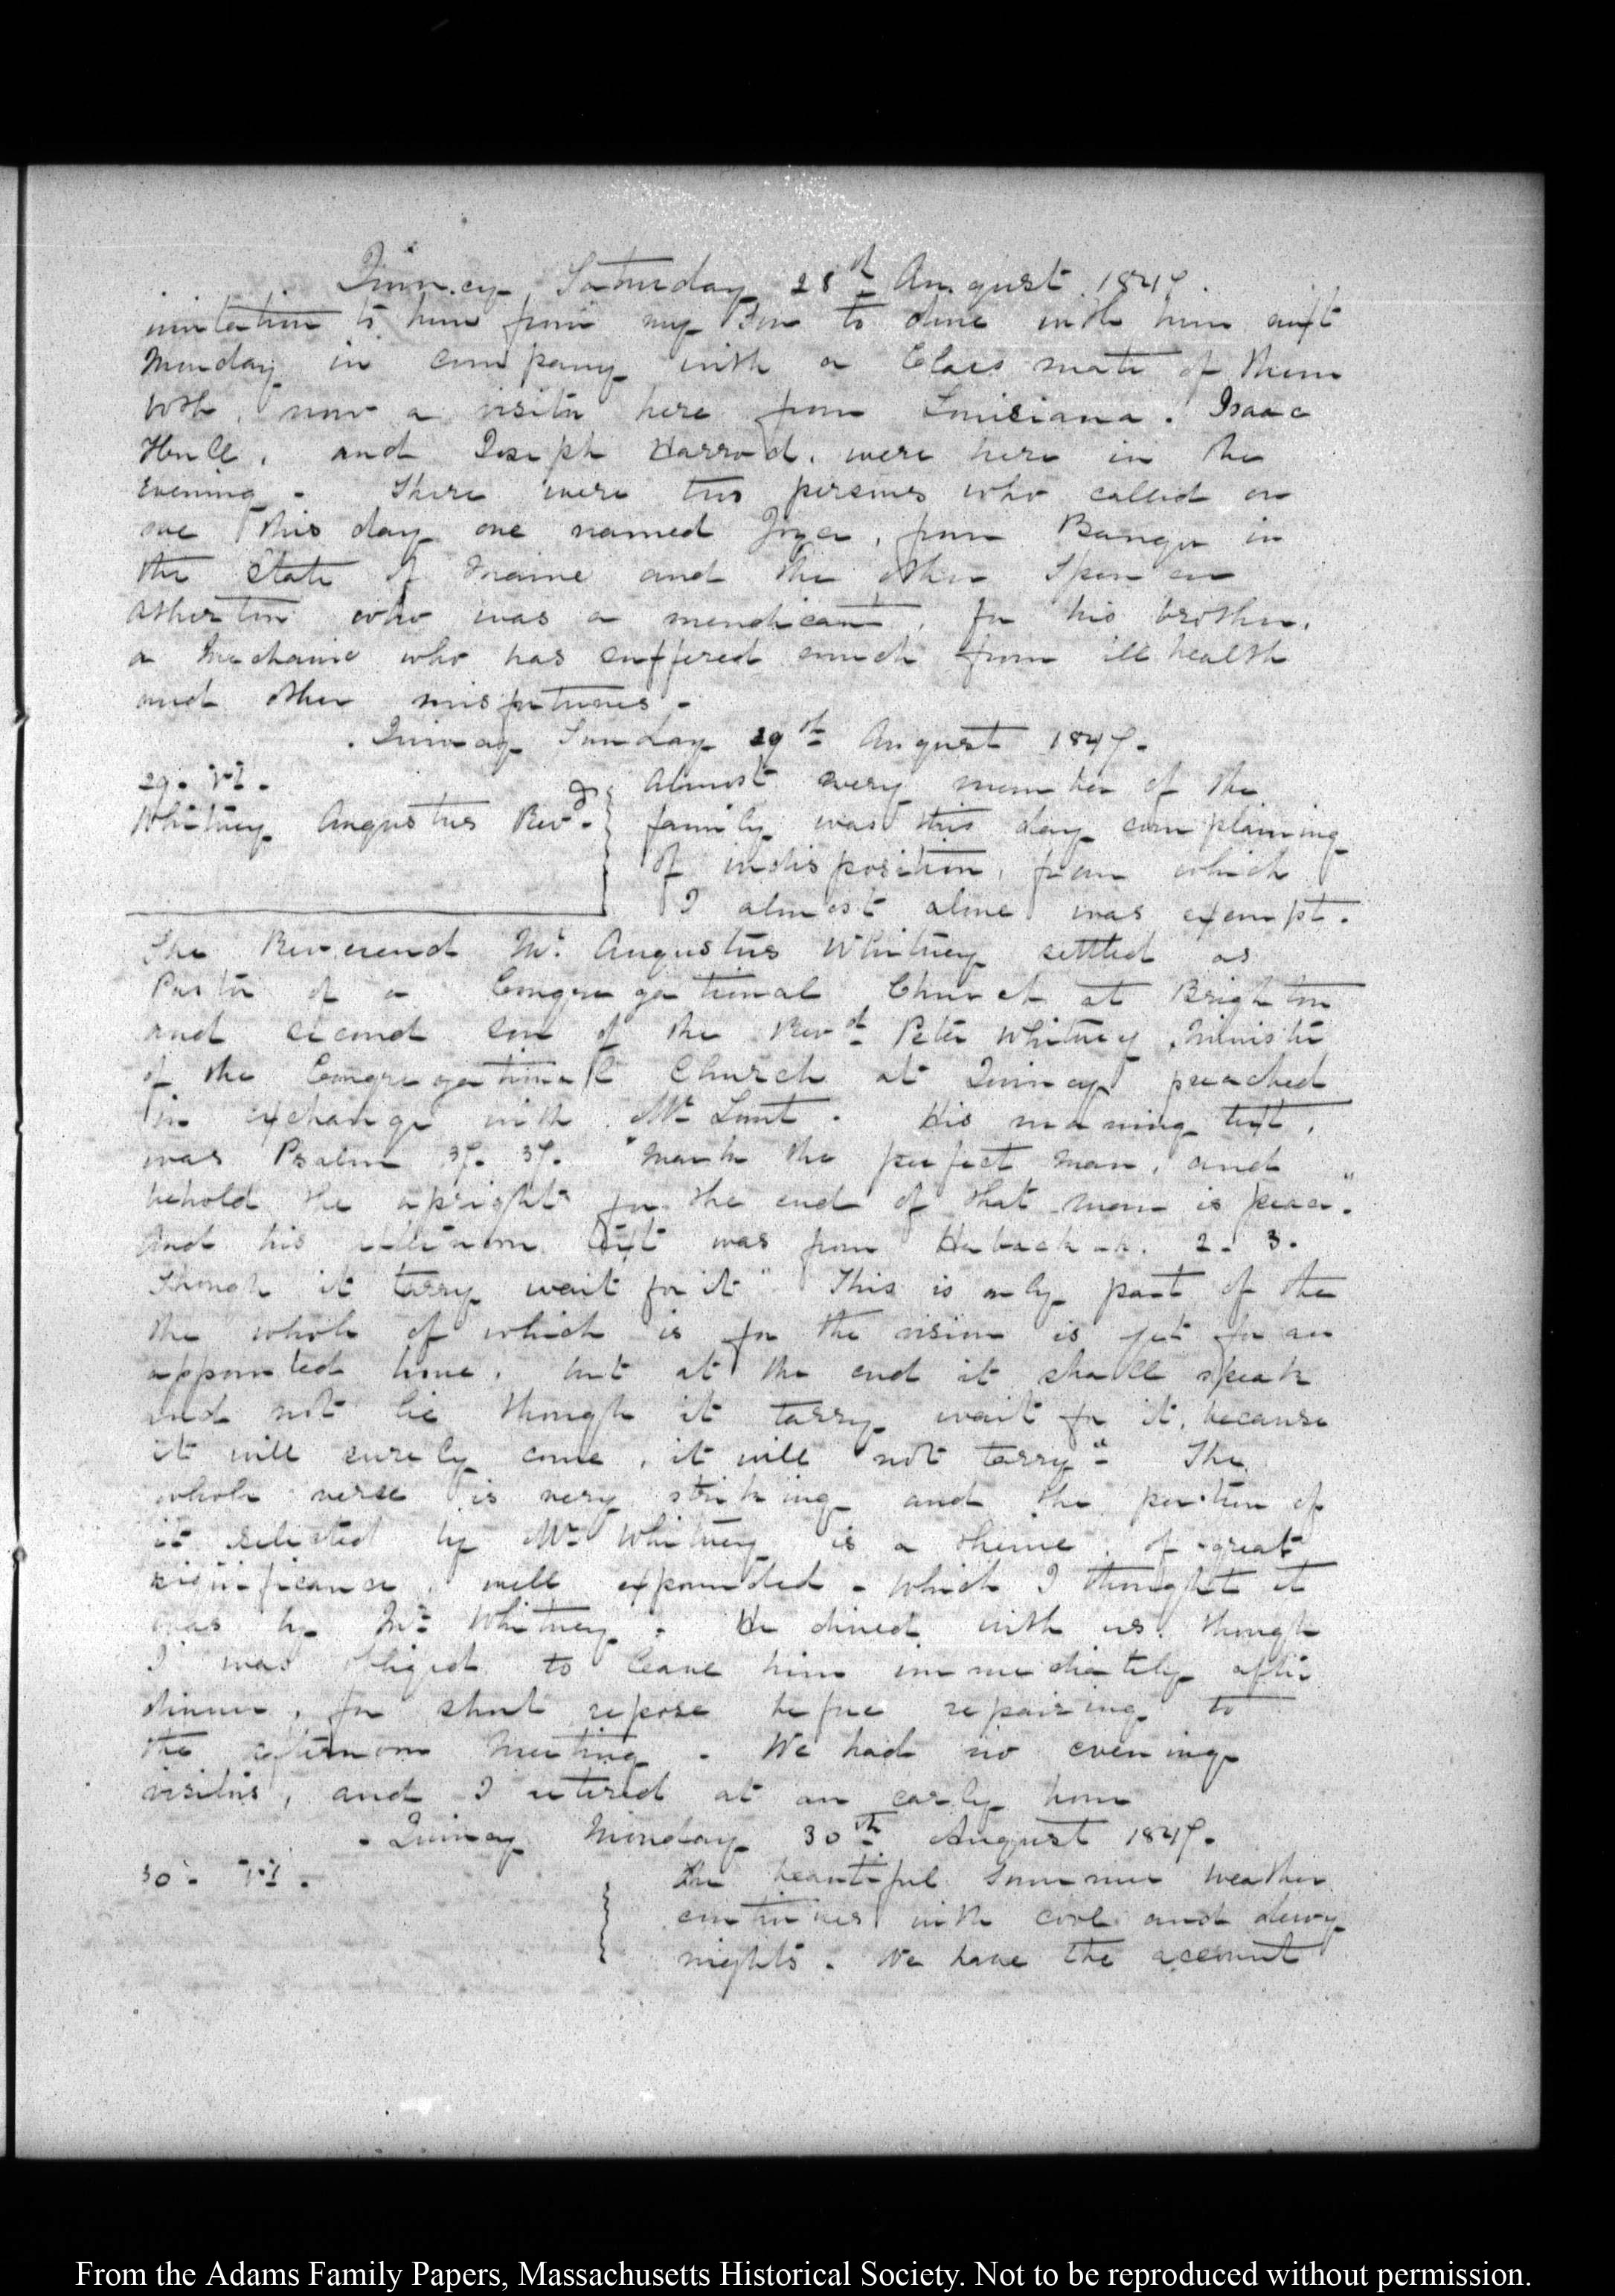 Quincy Saturday 28th August 1847.
invitation to him from my Son to dine with him next
Monday in company with a Class mate of them
both, now a visitor here from Louisiana. Isaac
Hull, and Joseph Harrod, were here in the
evening - There were two persons who called on
me this day one named from Bangor in
the State of Maine and the other Spencer
Atherton who was a mendicant, for his brother,
a Mechanic who has suffered much from ill health
and other misfortunes -
Quincy Sunday 29th August 1847.
29. VI.
Whitney Augustus Revd.
Almost every member of the
family was this day complaining
of indisposition, from which
I almost alone was exempt.
The Reverend Mr. Augustus Whitney settled as
Pastor of a Congregational Church at Brighton
and second son of the Revd Peter Whitney Minister
of the Congregational Church at Quincy preached
in exchange with Mr Lunt. His morning text,
was Psalm 37. 37. "Mark the perfect man, and
behold the upright for the end of that man is peace".
And his afternoon text was from Habackuk. 2. 3.
Though it tarry wait for it" This is only part of the
the whole of which is for the vision is yet for an
appointed time, but at the end it shall speak
and not lie though it tarry wait for it, because
it will surely come, it will not tarry" - The
whole verse is very striking and the portion of
it selected by Mr Whitney is a theme of great
significance, well expounded - which I thought it
was by Mr Whitney. He dined with us, though
I was obliged to leave him immediately after
dinner, for short repose before repairing to
the afternoon Meeting - We had no evening
visitors, and I retired at an early hour
- Quincy Monday 30th August 1847.
30. VI.
The beautiful Summer weather
continues with cool and dewy
nights. We have the account
From the Adams Family Papers, Massachusetts Historical Society. Not to be reproduced without permission.